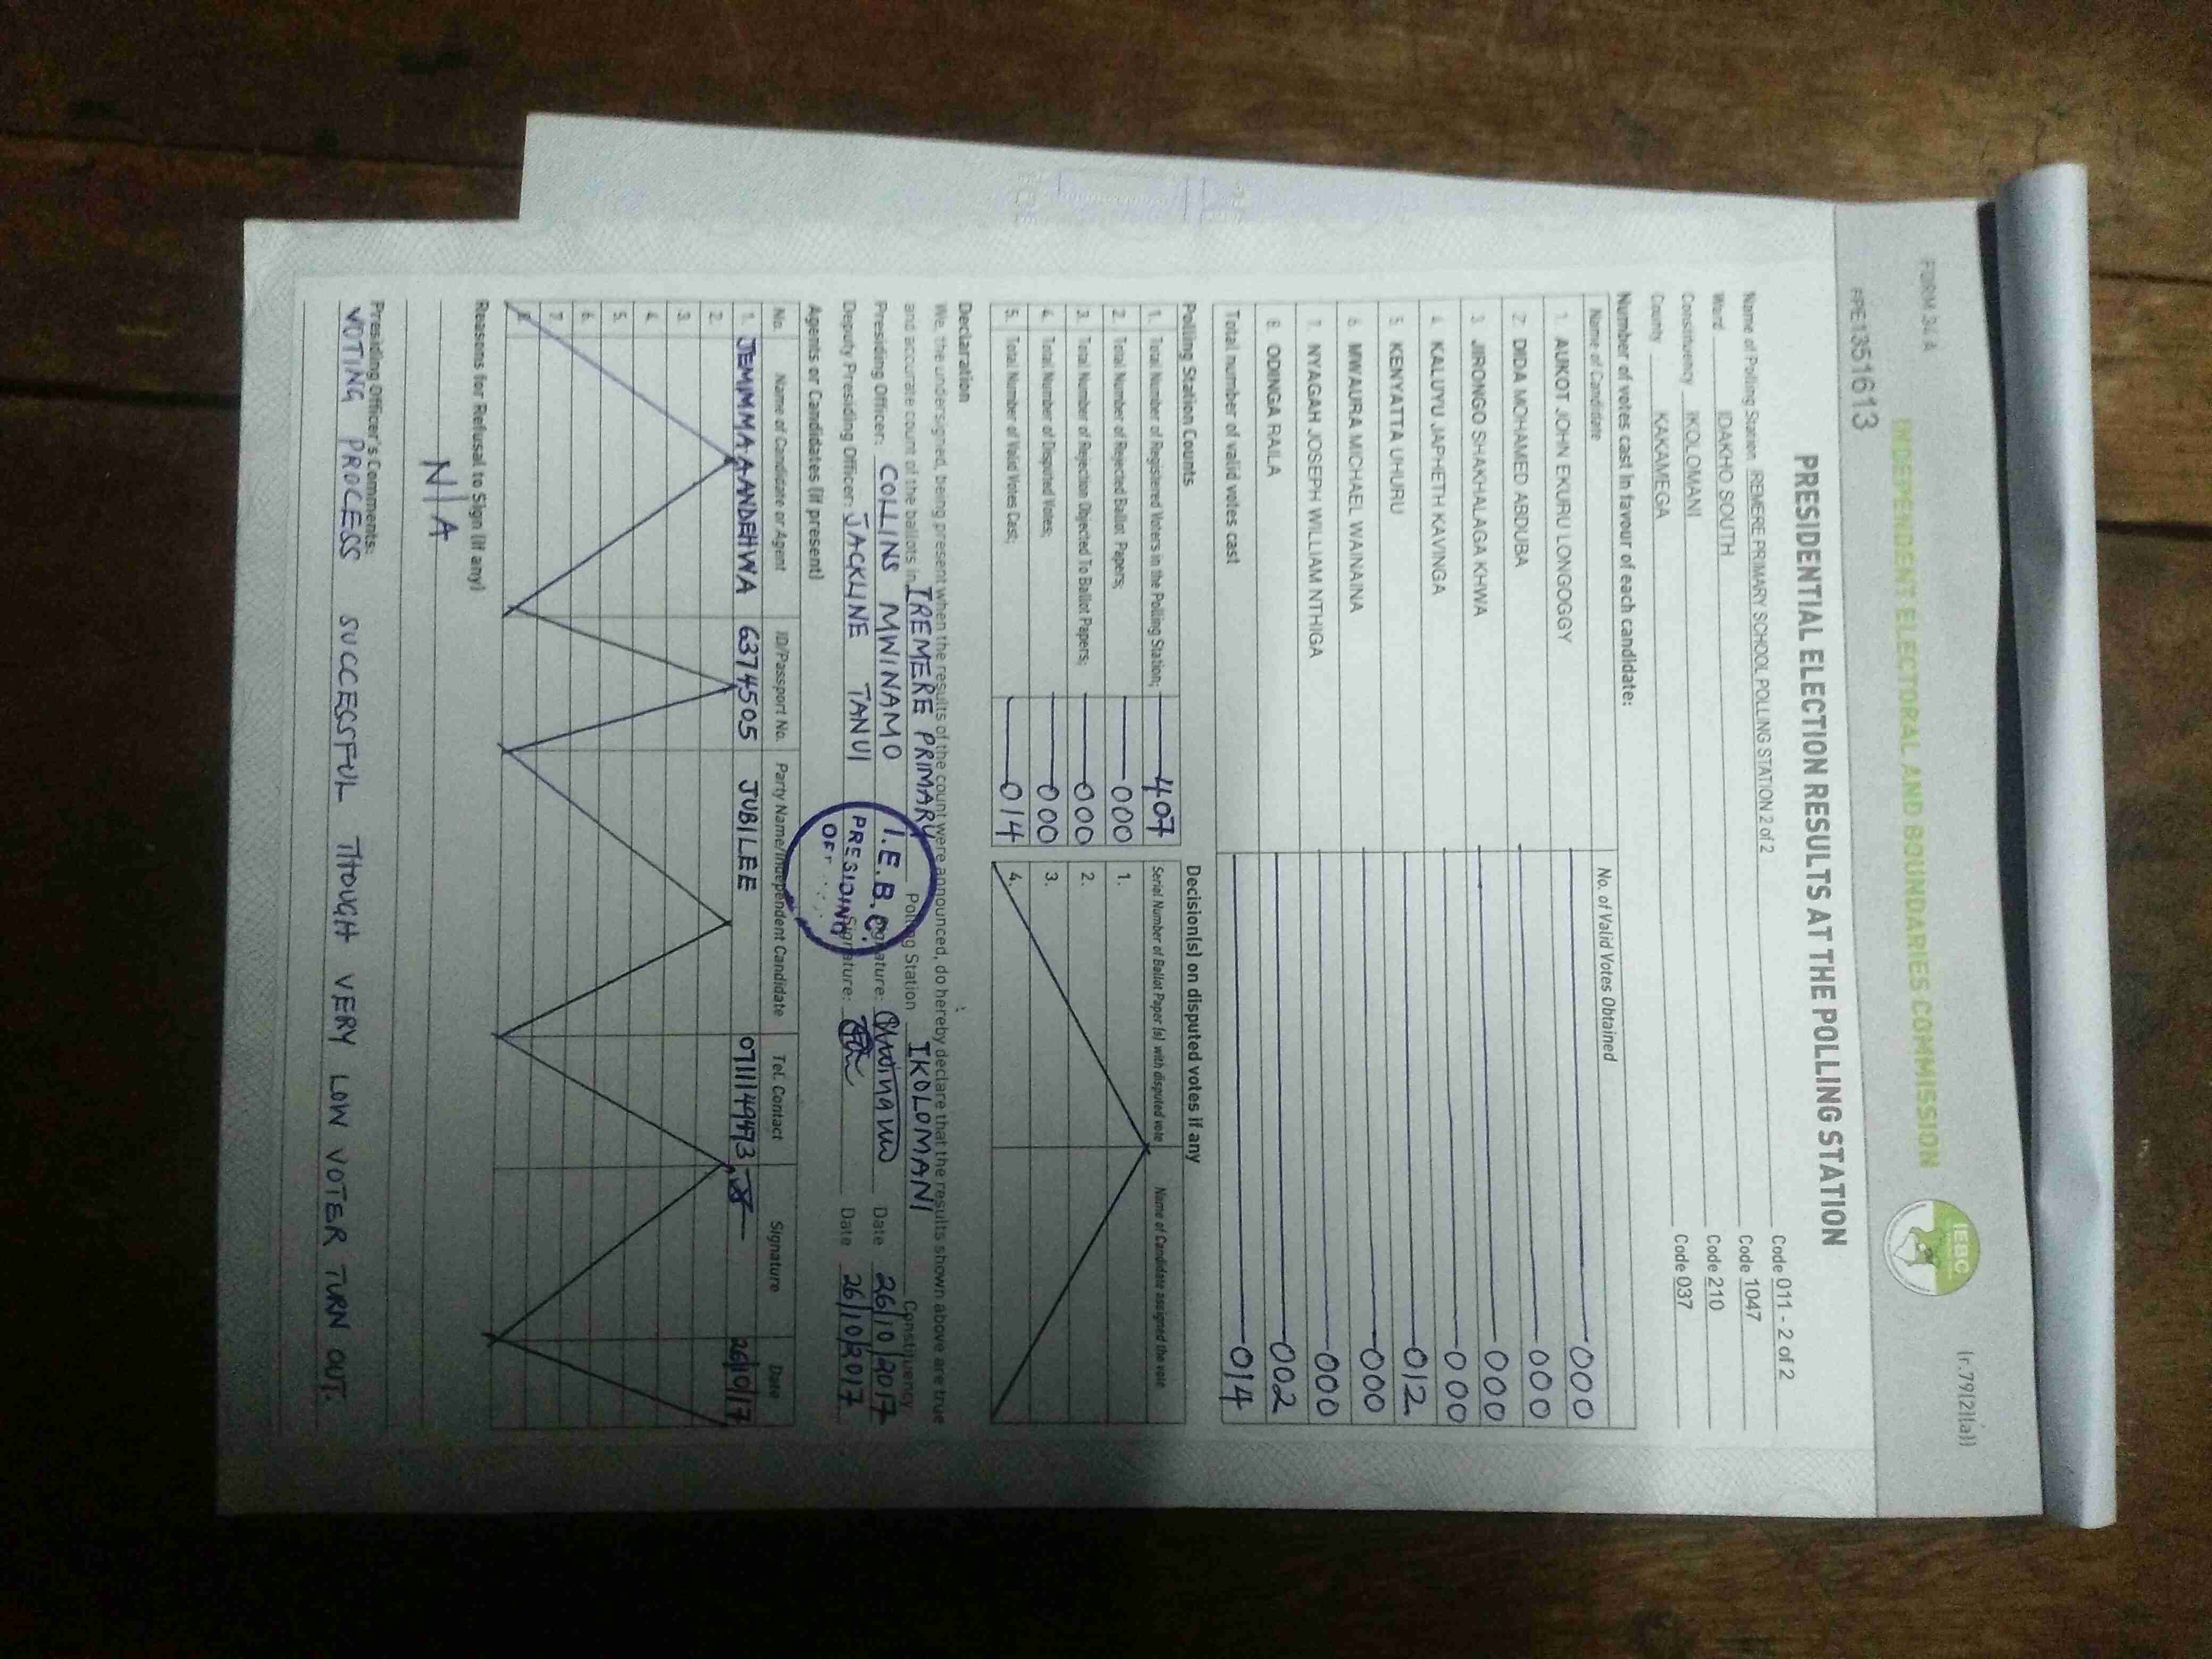 FORM 34 A
(r.79(2)(a))
INDEPENDENT ELECTORAL AND BOUNDARIES COMMISSION
IEBC
PPE1351613
PRESIDENTIAL ELECTION RESULTS AT THE POLLING STATION
Name of Polling Station IREMERE PRIMARY SCHOOL POLLING STATION 2 of 2 Code 011 - 2 of 2
Ward IDAKHO SOUTH Code 1047
Constituency IKOLOMANI Code 210
County KAKAMEGA Code 037
Number of votes cast in favour of each candidate:
Name of Candidate No. of Valid Votes Obtained
1. AUKOT JOHN EKURU LONGOGGY 000
2. DIDA MOHAMED ABDUBA 000
3. JIRONGO SHAKHALAGA KHWA 000
4. KALUYU JAPHETH KAVINGA 000
5. KENYATTA UHURU 012
6. MWAURA MICHAEL WAINAINA 000
7. NYAGAH JOSEPH WILLIAM NTHIGA 000
8. ODINGA RAILA 002
Total number of valid votes cast 014
Polling Station Counts Decision(s) on disputed votes if any
1. Total Number of Registered Voters in the Polling Station; 407 Serial Number of Ballot Paper (s) with disputed vote Name of Candidate assigned the vote
2. Total Number of Rejected Ballot Papers; 000 1.
3. Total Number of Rejection Objected To Ballot Papers; 000 2.
4. Total Number of Disputed Votes; 000 3.
5. Total Number of Valid Votes Cast; 014 4.
Declaration
We, the undersigned, being present when the results of the count were announced, do hereby declare that the results shown above are true
and accurate count of the ballots in IREMERE PRIMARY Polling Station IKOLOMANI Constituency
Presiding Officer: COLLINS MWINAMO Signature: Date 26/10/2017
Deputy Presiding Officer: JACKLINE TANUI Signature: Date 26/10/2017
I.E.B.C.
PRESIDING
Agents or Candidates (if present)
No. Name of Candidate or Agent ID/Passport No. Party Name/Independent Candidate Tel. Contact Signature Date
1. JEMIMMA AANDEHWA 6374505 JUBILEE 0711149473 26/10/17
2.
3.
4.
5.
6.
7.
8.
Reasons for Refusal to Sign (if any)
N/A
Presiding Officer's Comments:
VOTING PROCESS SUCCESSFUL THOUGH VERY LOW VOTER TURN OUT.